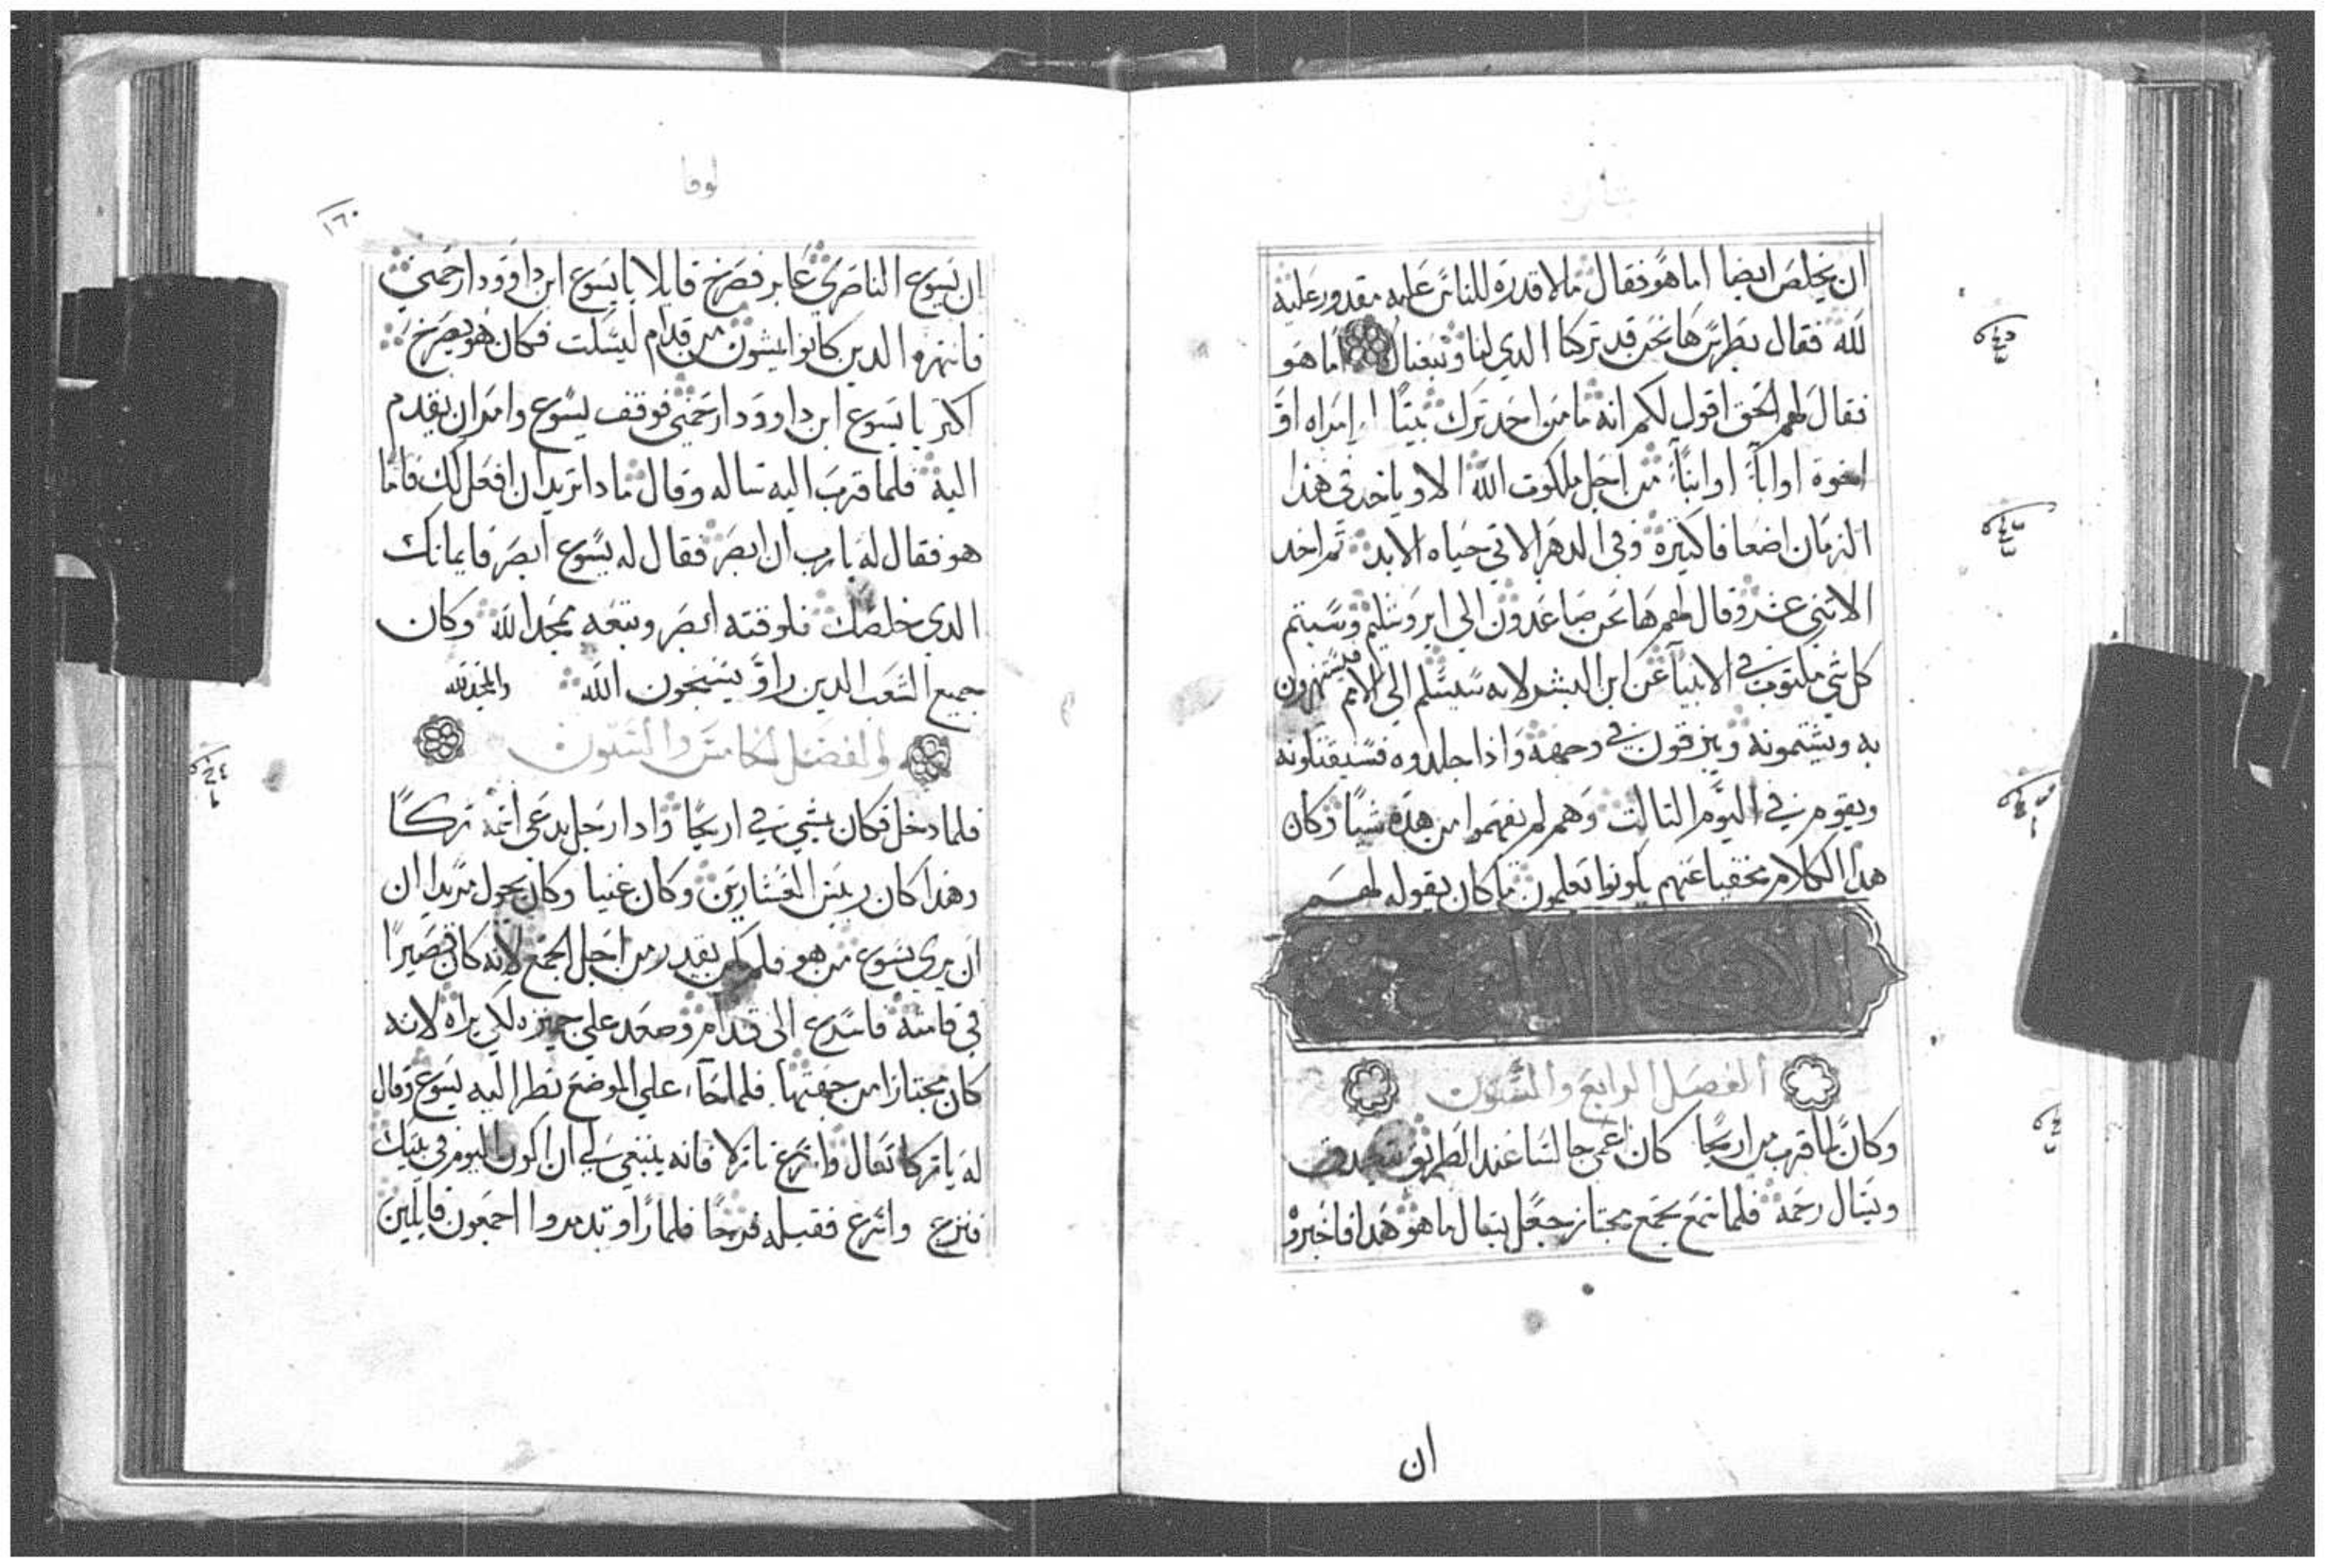 بشارة
ان يخلص ايضا اما هو فقال ما لا قدره للناس عليه مقدور عليه
لله فقال بطرس ها نحن قد تركنا الدي لنا وتبعناك اما هو
فقال لهم الحق اقول لكم انه ما من احد ترك بيتًا او امراه او
اخوة او اباً او ابناً من اجل ملكوت الله الا وياخد في هذا
الزمان اضعافا كثيره وفي الدهر الاتي حياه الابد ثم اخد
الاثني عشر وقال لهم ها نحن صاعدون الي ايروشليم وسيتم
كل شي مكتوب في الانبيآ عن ابن البشر لانه سيسلم الي الامم فيستهزون
به ويشتمونه ويبزقون في وجهه واذا جلدوه فسيقتلونه
ويقوم في اليوم التالت وهم لم يفهموا من هذه شيًا وكان
هذا الكلام مخفيا عنهم يكونوا يعلمون ما كان يقوله لهم
الفصل الرابع والستون
وكان لما قرب من اريحا كان اعمى جالسا عند الطريق يتصدق
ويسال رحمه فلما سمع بجمع مجتاز جعل يسال ما هو هذا فاخبروه
ان
لوقا
١٦٠
ان يسوع الناصري عابر فصرخ قايلا يا يسوع ابن داوود ارحمني
فانتهره الدين كانوا يمشون من قدام ليسكت فكان هو يصرخ
اكثر يا يسوع ابن داوود ارحمني فوقف يسوع وامر ان يقدم
اليه فلما قرب اليه ساله وقال ما دا تريد ان افعل لك فاما
هو فقال له يا رب ان ابصر فقال له يسوع ابصر فايمانك
الدي خلصك فلوقته ابصر وتبعه يمجد الله وكان
جميع الشعب الدين راو يسبحون الله والمجد لله
الفصل الخامس والستون
فلما دخل فكان يمشي في اريحا وادا رجل يدعي اسمه زكا
وهذا كان ريس العشارين وكان غنيا وكان يجول مريدا ان
ان يري يسوع من هو فلم يقدر من اجل الجمع لانه كان قصيرًا
في قامته فاسرع الى قدام وصعد علي جميزه لكي يراه لانه
كان مجتازا من جهتها فلما جآء علي الموضع نظر اليه يسوع وقال
له يا زكا تعال واسرع نازلا فانه ينبغي لي ان اكون اليوم في بيتك
فنزع واسرع فقبله فرحًا فلما راو تدمروا اجمعون قايلين